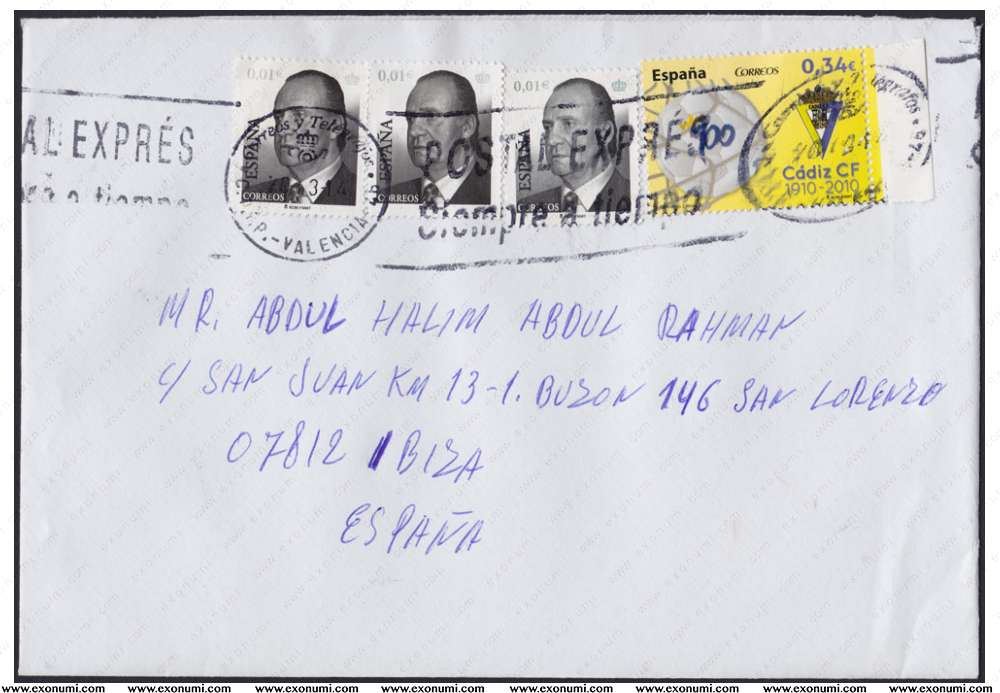 0,01€ 0,01€ 0,01€ España CORREOS 0,34€
ESPAÑA ESPAÑA ESPAÑA
CORREOS CORREOS CORREOS
100
Cádiz CF
1910-2010
AL EXPRÉS
a tiempo
Correos y Telégrafos
-VALENCIA-
POSTAL EXPRÉS
Siempre a tiempo
MR. ABDUL HALIM ABDUL RAHMAN
C/ SAN JUAN KM 13-1. BUZON 146 SAN LORENZO
07812 IBIZA
ESPAÑA
www.exonumi.com www.exonumi.com www.exonumi.com www.exonumi.com www.exonumi.com www.exonumi.com www.exonumi.com www.exonumi.com